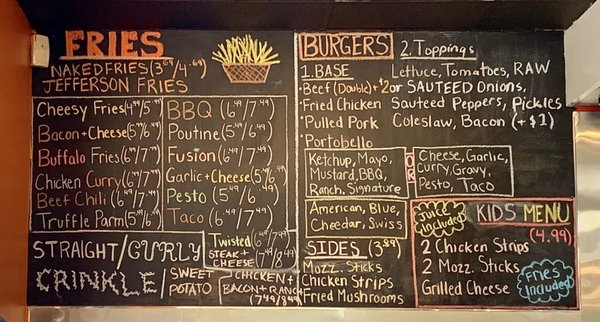 FRIES
NAKED FRIES (3.69/4.69)
JEFFERSON FRIES
Cheesy Fries (4.99/5.99)
Bacon + Cheese (5.49/6.49)
Buffalo Fries (6.49/7.49)
Chicken Curry (6.49/7.49)
Beef Chili (6.49/7.49)
Truffle Parm (5.49/6.49)
BBQ (6.49/7.49)
Poutine (5.49/6.49)
Fusion (6.49/7.49)
Garlic + Cheese (5.49/6.49)
Pesto (5.49/6.49)
Taco (6.49/7.49)
Twisted (6.49/7.49)
STEAK + CHEESE (7.49/8.49)
STRAIGHT/CURLY
CRINKLE/
SWEET POTATO
CHICKEN + BACON + RANCH (7.49/8.49)
BURGERS
1. BASE
Beef (Double) + $2
Fried Chicken
Pulled Pork
Portobello
2. Toppings
Lettuce, Tomatoes, RAW
or SAUTEED Onions,
Sauteed Peppers, Pickles
Coleslaw, Bacon (+$1)
Ketchup, Mayo,
Mustard, BBQ,
Ranch, Signature
OR
Cheese, Garlic,
Curry, Gravy,
Pesto, Taco
American, Blue,
Cheedar, Swiss
SIDES (3.89)
Mozz. Sticks
Chicken Strips
Fried Mushrooms
Juice Included
KIDS MENU
(4.99)
2 Chicken Strips
2 Mozz. Sticks
Grilled Cheese
Fries Included